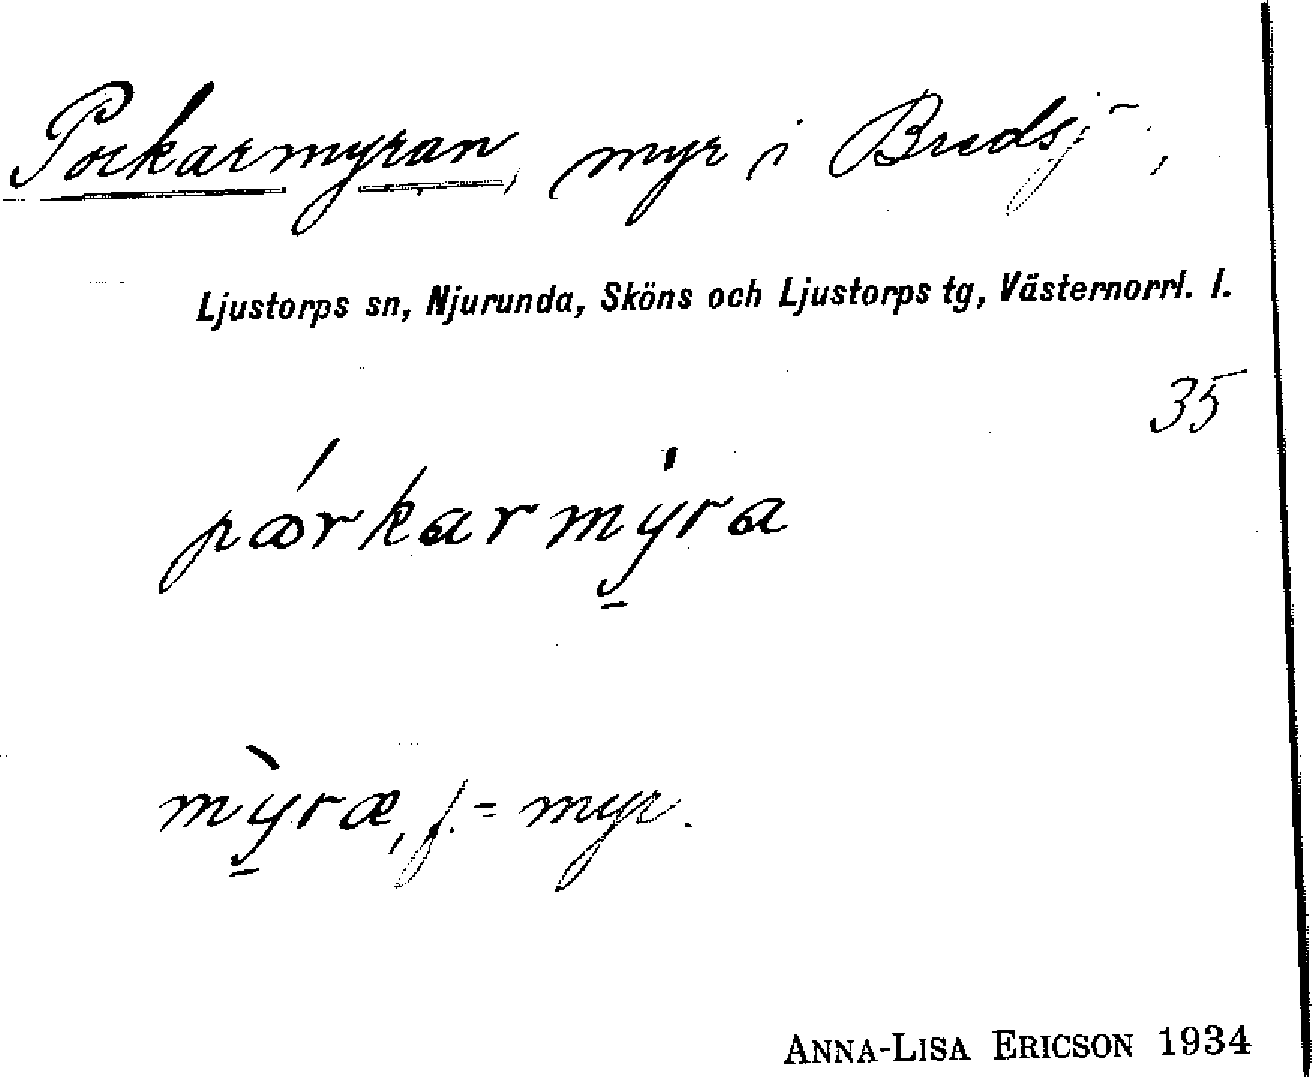 Porkarmyran, myr i Bredsj-,
Ljustorps sn, Njurunda, Sköns och Ljustorps tg, Västernorrl. l.
35
pǿrkarmy̱ra
mỳ̱ræ, f. = myr.
ANNA-LISA ERICSON 1934